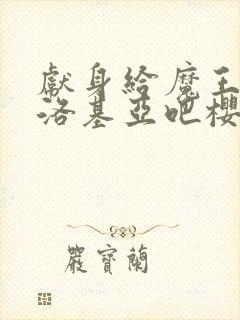 獻身給魔王
洛基亞吧櫻
嚴寶蘭